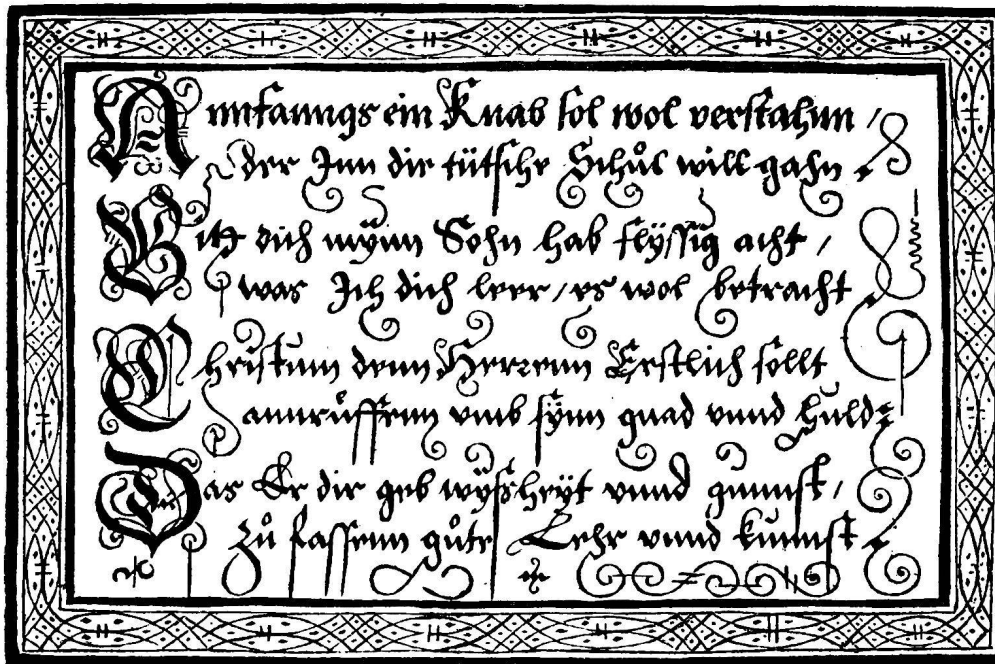 Annfanngs ein Knab sol wol verstahnn /
der Inn die tütsche Schůl will gahn.
Bitt dich mÿnn Sohn hab flÿssig acht /
was Ich dich leer / es wol betracht.
Christum denn Herrenn Erstlich söllt
annrůffenn vmb sÿnn gnad vnnd huld.
Das Er dir geb wÿßheÿt vnnd gunnst /
Zů fassenn gůte Lehr vnnd kunnst.